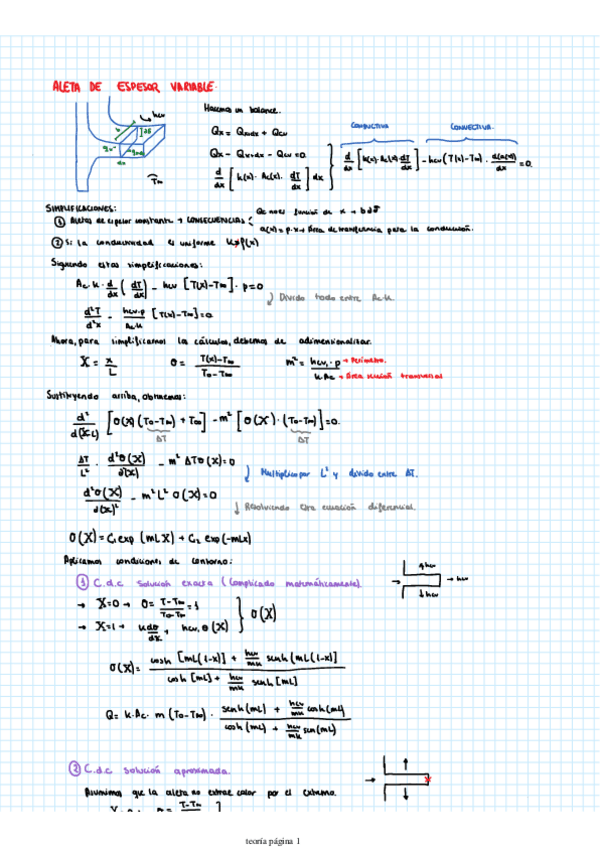 ALETA DE ESPESOR VARIABLE.
Hacemos un balance.
Qx = Qx+dx + Qcv
Qx - Qx+dx - Qcv = 0
d/dx [k(x) · Ac(x) · dT/dx] dx
CONDUCTIVA
CONVECTIVA.
d/dx [k(x) · Ac(x) dT/dx] - hcv (T(x) - T∞) · d(a(x))/dx = 0.
hcv
T∞
dx
SIMPLIFICACIONES:
① Aletas de espesor constante → CONSECUENCIAS {
Ac no es función de x → b d δ
a(x) = p · x → Área de transferencia para la conducción.
② Si la conductividad es uniforme k ≠ f(x)
Siguiendo estas simplificaciones:
Ac · k · d/dx (dT/dx) - hcv [T(x) - T∞] · p = 0
↓ Divido todo entre Ac · k.
d²T/d²x - hcv·p/Ac·k [T(x) - T∞] = 0
Ahora, para simplificarnos los cálculos, debemos de adimensionalizar.
X = x/L θ = T(x) - T∞/To - T∞ m² = hcv · p/k · Ac
→ Perímetro.
→ Área sección transversal
Sustituyendo arriba, obtenemos:
d²/d(X·L)² [θ(X) (To - T∞) + T∞] - m² [θ(X) · (To - T∞)] = 0.
ΔT ΔT
ΔT/L² · d²θ(X)/d(X)² - m² ΔT θ(X) = 0
↓ Multiplico por L² y divido entre ΔT.
d²θ(X)/d(X)² - m² L² θ(X) = 0
↓ Resolviendo esta ecuación diferencial.
θ(X) = C₁ exp (mLX) + C₂ exp (-mLx)
Aplicamos condiciones de contorno:
① C.d.c solución exacta (complicado matemáticamente).
hcv
→ hcv
↓ hcv
→ X=0 → θ = T - T∞/To - T∞ = 1
→ X=1 → k dθ/dx, hcv, θ(X)
} θ(X)
θ(X) = cosh [mL(1-x)] + hcv/mk senh (mL(1-x)) / cosh [mL] + hcv/mk senh [mL]
Q = k · Ac · m (To - T∞) · senh (mL) + hcv/mk cosh (mL) / cosh (mL) + hcv/mk sen (mL)
② C.d.c solución aproximada.
Asumimos que la aleta no extrae calor por el extremo.
T - T∞
teoría página 1